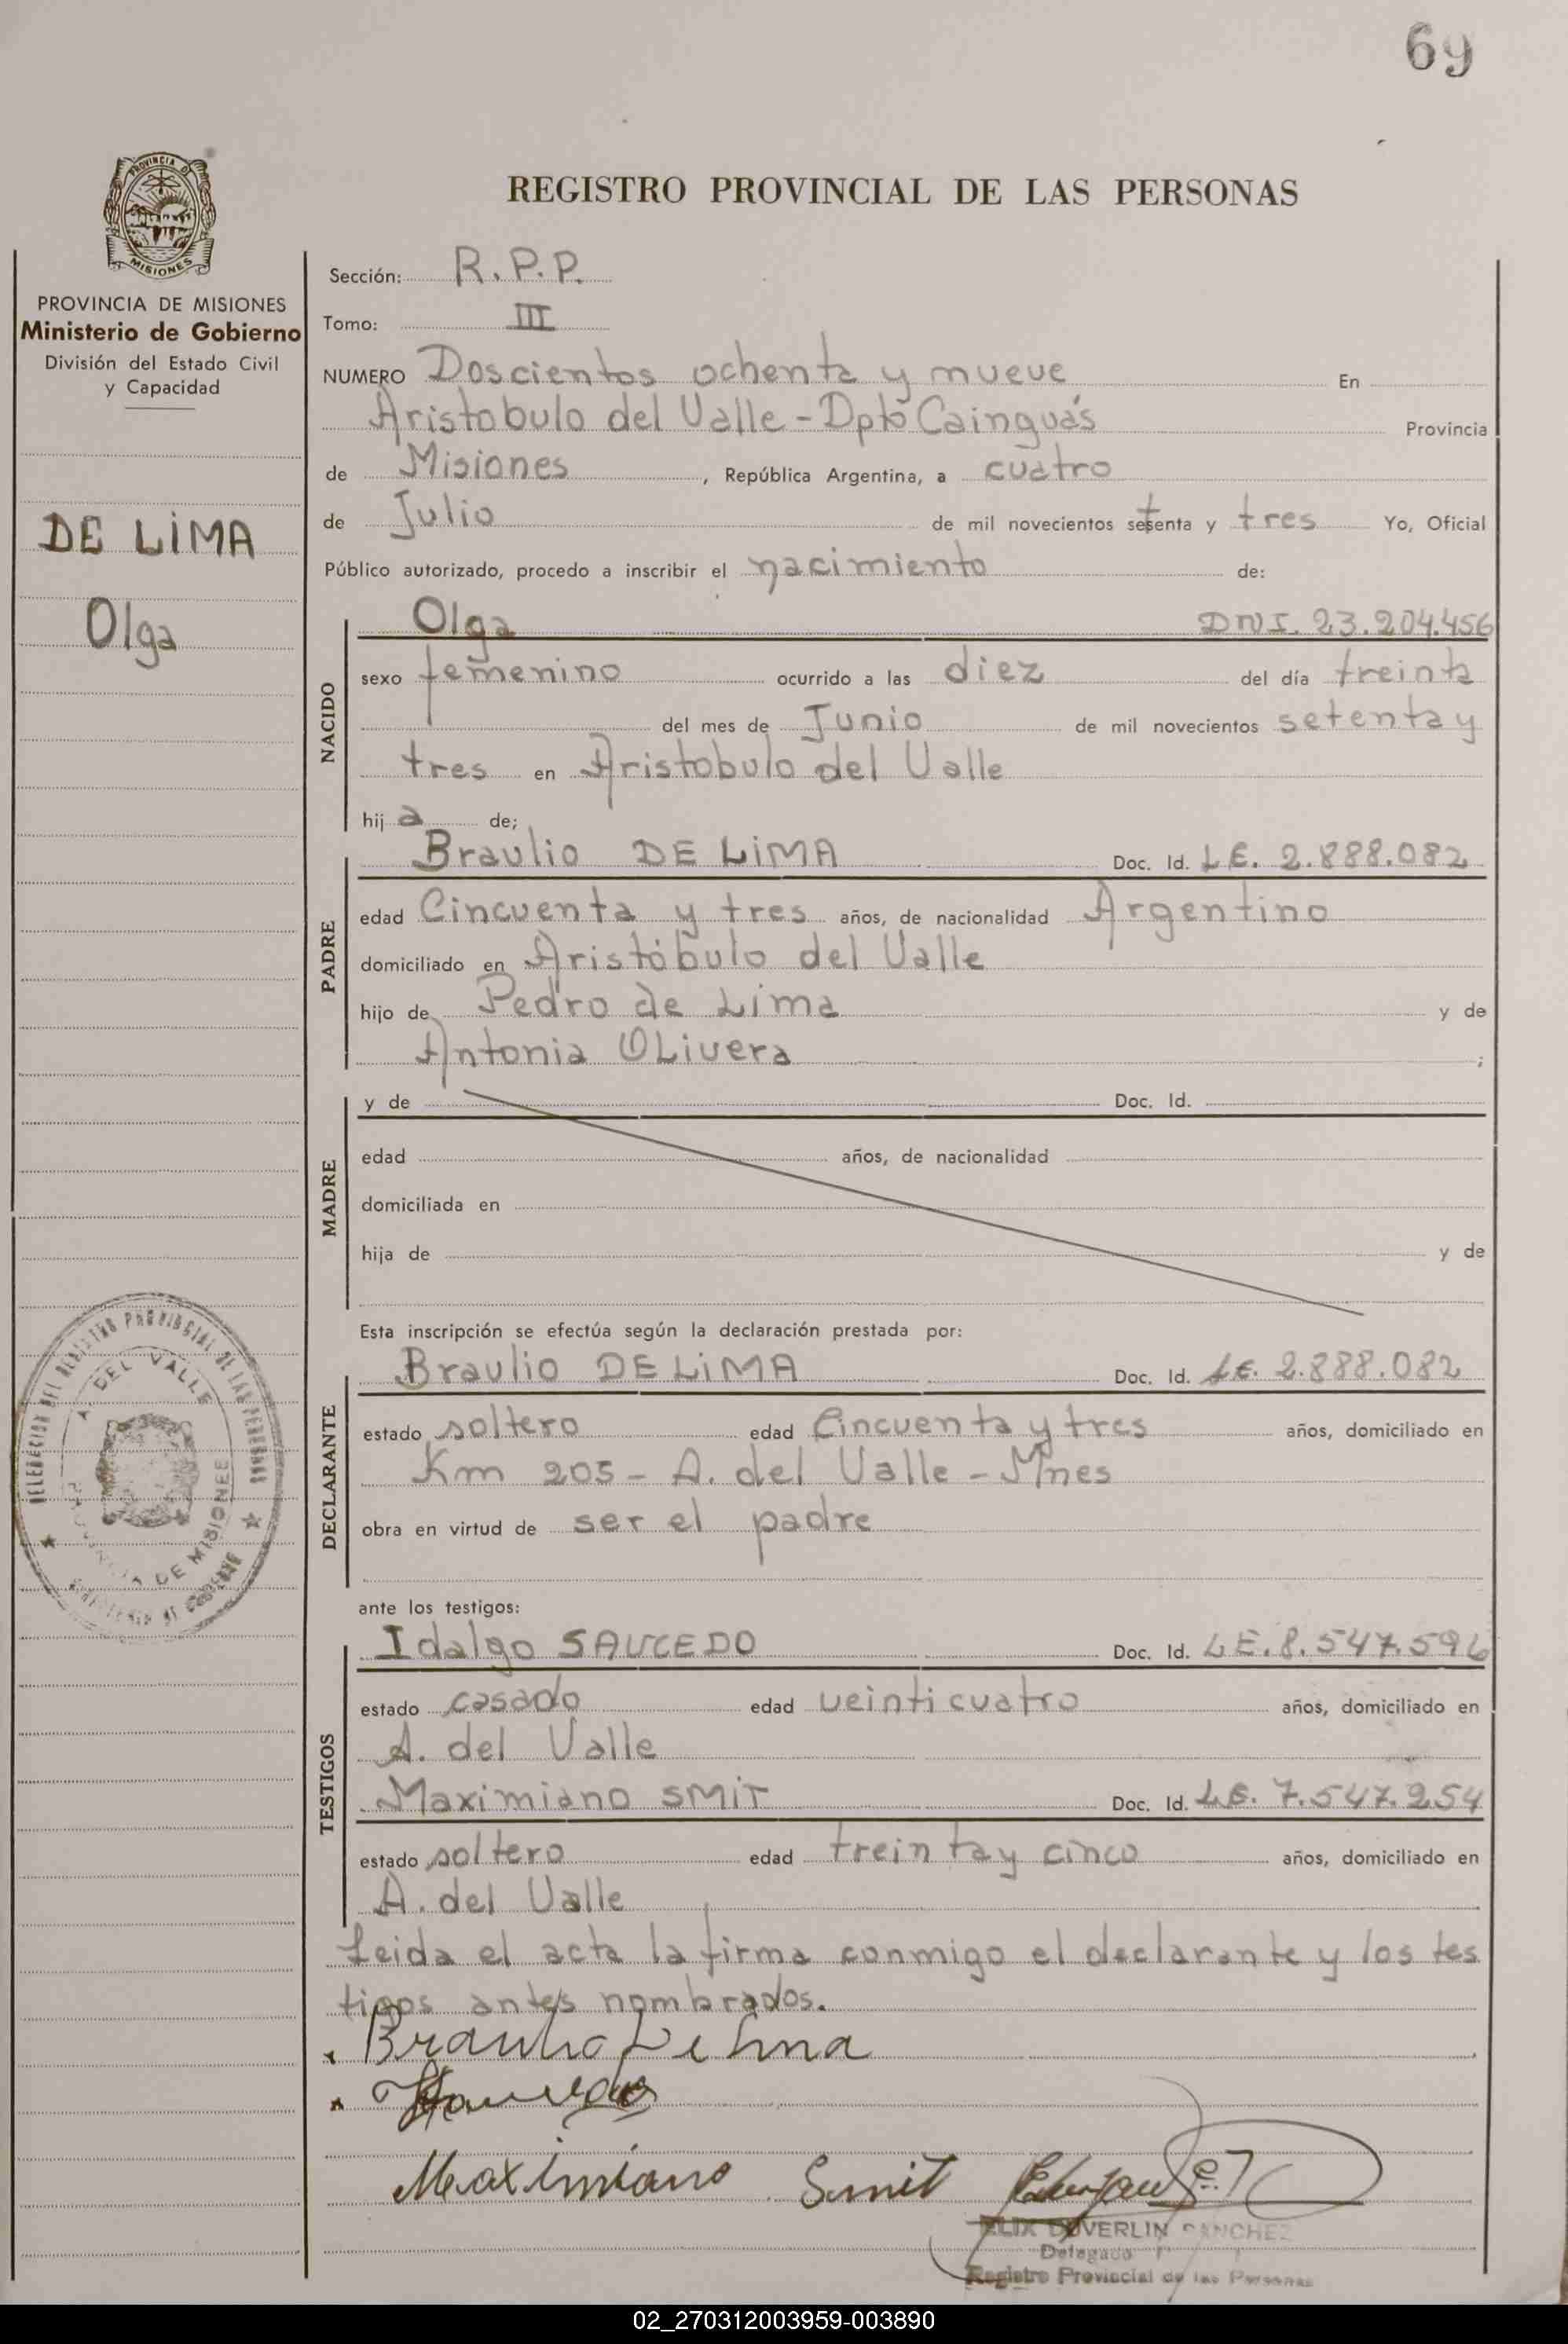 69
PROVINCIA DE
MISIONES
PROVINCIA DE MISIONES
Ministerio de Gobierno
División del Estado Civil
y Capacidad
DE LIMA
Olga
REGISTRO PROVINCIAL DE LAS PERSONAS
Sección: R.P.P.
Tomo: III
NUMERO Doscientos ochenta y mueve En
Aristobulo del Valle - Dpto Cainguás Provincia
de Misiones, República Argentina, a cuatro
de Julio de mil novecientos setenta y tres Yo, Oficial
Público autorizado, procedo a inscribir el nacimiento de:
NACIDO
Olga DNI. 23.204.456
sexo femenino ocurrido a las diez del día treinta
del mes de Junio de mil novecientos setenta y
tres en Aristobulo del Valle
hij a de;
PADRE
Braulio DE LIMA Doc. Id. LE. 2.888.082
edad Cincuenta y tres años, de nacionalidad Argentino
domiciliado en Aristóbulo del Valle
hijo de Pedro de Lima y de
Antonia OLivera ;
MADRE
y de Doc. Id.
edad años, de nacionalidad
domiciliada en
hija de y de
Esta inscripción se efectúa según la declaración prestada por:
DECLARANTE
Braulio DE LIMA Doc. Id. LE. 2.888.082
estado soltero edad Cincuenta y tres años, domiciliado en
Km 205 - A. del Valle - Mnes
obra en virtud de ser el padre
DELEGACION DEL REGISTRO PROVINCIAL DE LAS PERSONAS
A. DEL VALLE
DE MISIONES
ante los testigos:
TESTIGOS
Idalgo SAUCEDO Doc. Id. LE. 8.547.596
estado casado edad veinticuatro años, domiciliado en
A. del Valle
Maximiano SMIT Doc. Id. LE. 7.547.254
estado soltero edad treinta y cinco años, domiciliado en
A. del Valle
Leida el acta la firma conmigo el declarante y los tes
tigos antes nombrados.
Braulio De Lima
Maximiano Smit
ELIX DUVERLIN SANCHEZ
Delegado
Registro Provincial de las Personas
02_270312003959-003890